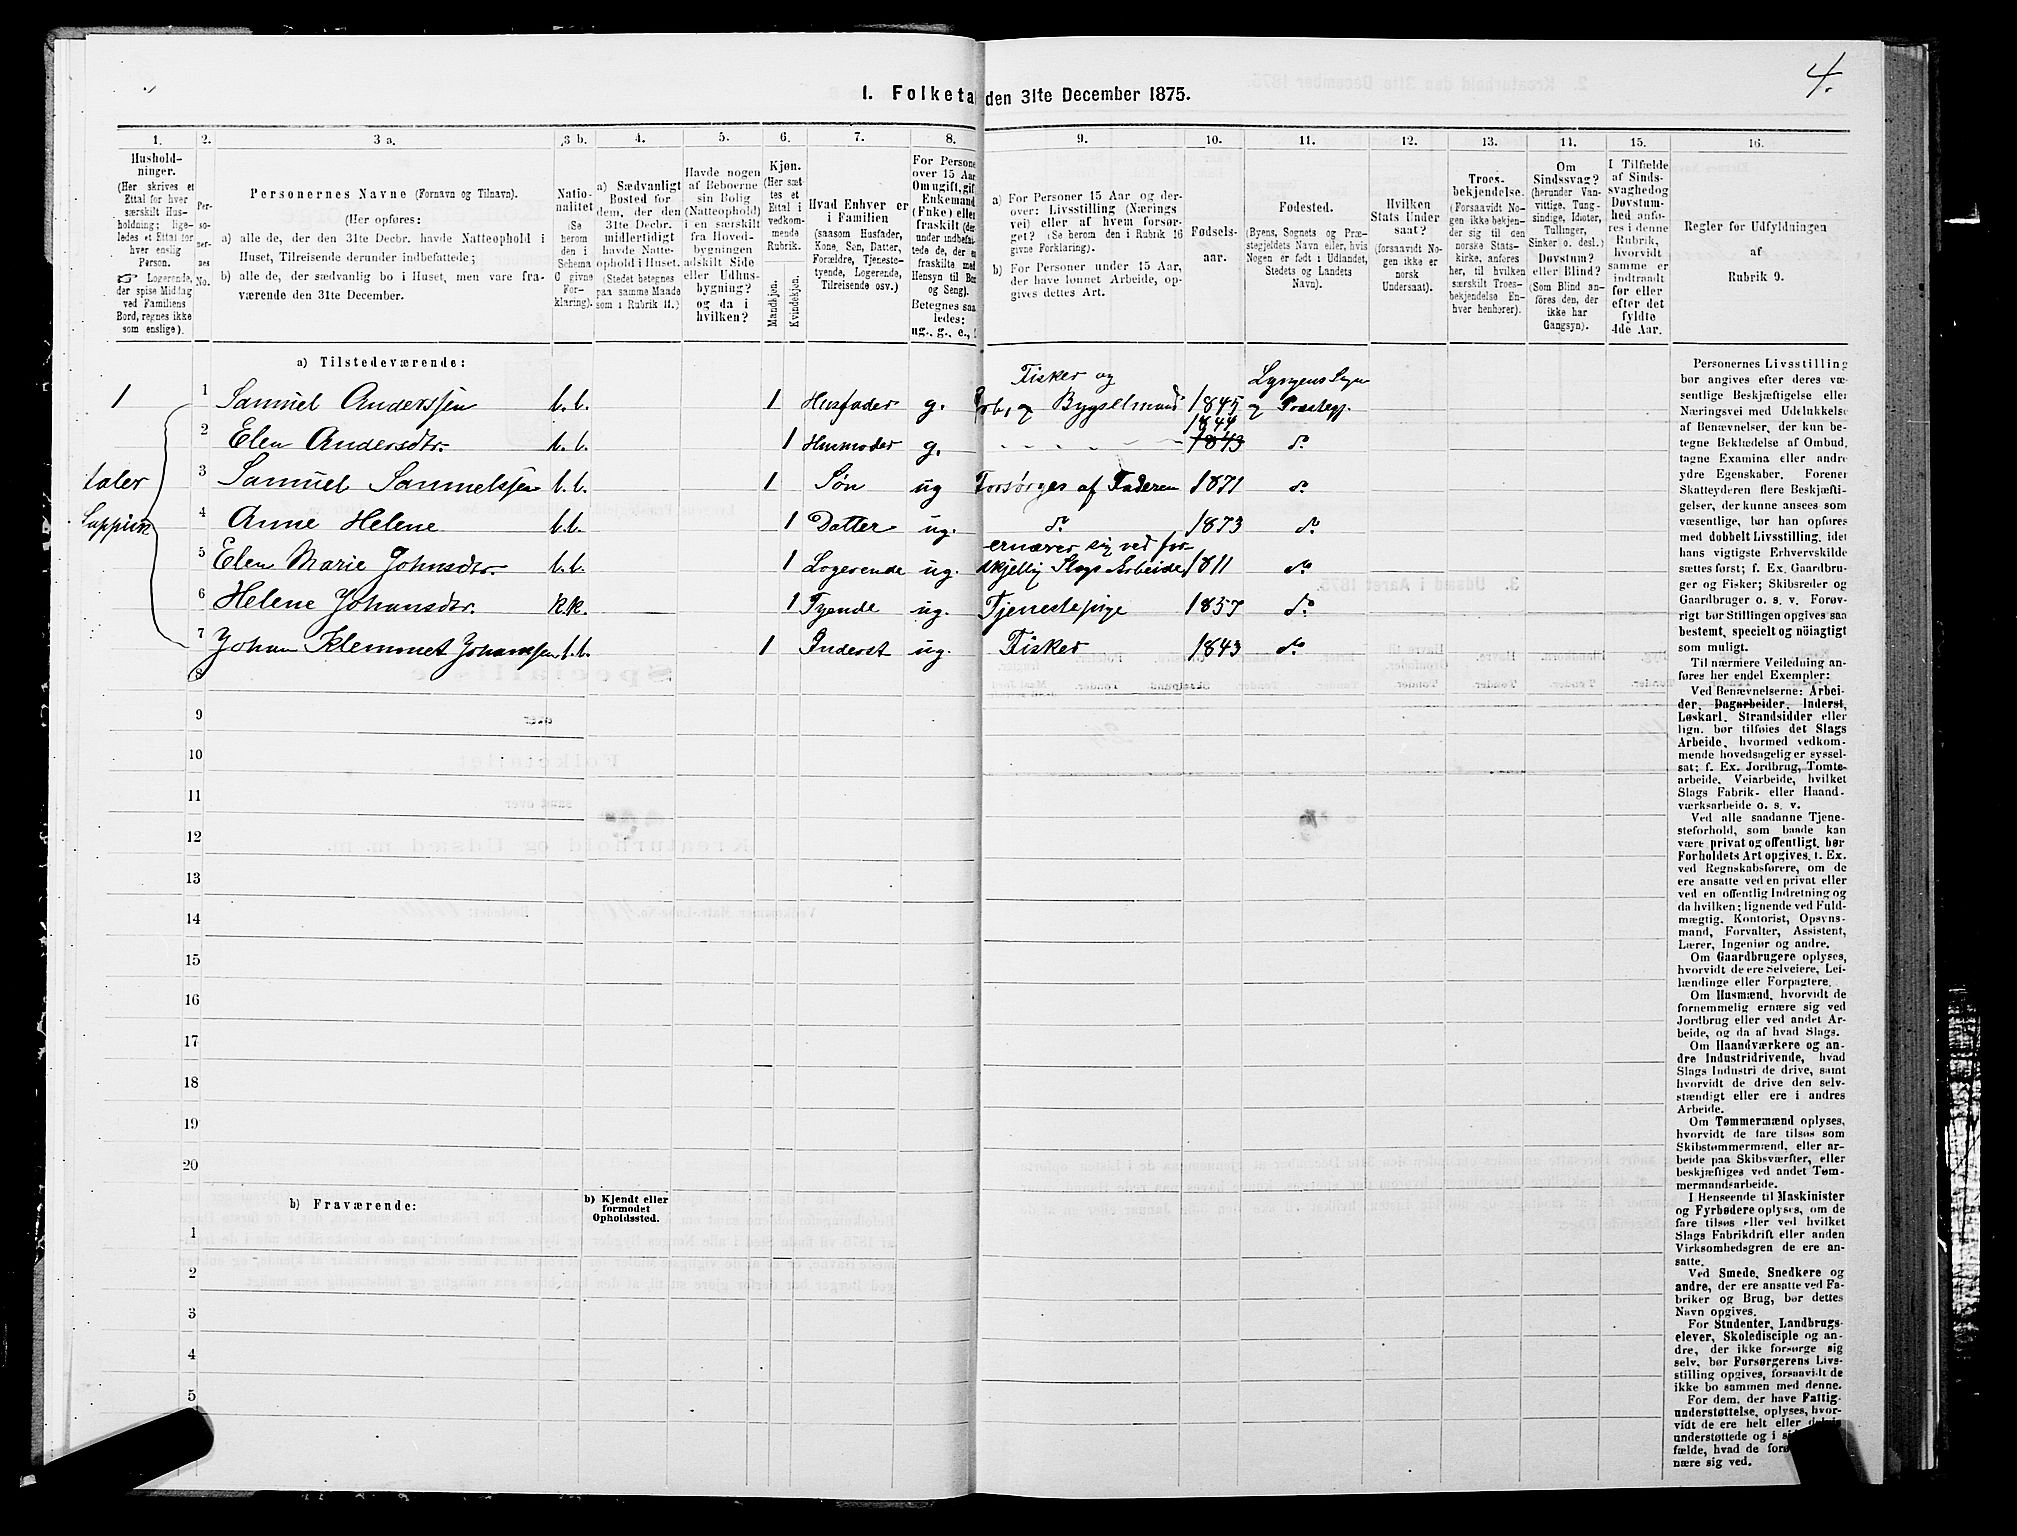 4.
1. Folketa den 31te December 1875.
1. 2. 3 a. 3 b. 4. 5. 6. 7. 8. 9. 10. 11. 12. 13. 14. 15. 16.
Hushold-
ninger.
(Her skrives et
Ettal for hver
særskilt Hus-
holdning; lige-
ledes et Ettal for
hver enslig
Person.
Logerende,
der spise Middag
ved Familiens
Bord, regnes ikke
som enslige).
Per-
so-
ner-
nes
No.
Personernes Navne (Fornavn og Tilnavn).
(Her opføres:
a) alle de, der den 31te Decbr. havde Natteophold i
Huset, Tilreisende derunder indbefattede;
b) alle de, der sædvanlig bo i Huset, men vare fra-
værende den 31te December).
Natio-
nalitet
(Se
herom
den i
Schema
C givne
For-
klaring).
a) Sædvanligt
Bosted for
dem, der den
31te Decbr.
midlertidigt
havde Natte-
ophold i Huset.
(Stedet betegnes
paa samme Maade
som i Rubrik 11.)
Havde nogen
af Beboerne
sin Bolig
(Natteophold)
i en særskilt
fra Hoved-
bygningen
adskilt Side
eller Udhus-
bygning?
og da i
hvilken?
Kjøn.
(Her sæt-
tes et
Ettal i
vedkom-
mende
Rubrik.
Mandkjøn.
Kvindekjøn.
Hvad Enhver er
i Familien
(saasom Husfader,
Kone, Søn, Datter,
Forældre, Tjeneste-
tyende, Logerende,
Tilreisende osv.)
For Persone
over 15 Aar
Om ugift, gif
Enkemand
(Enke) elle
fraskilt (der
under indbefat
tede de, der e
fraskilte med
Hensyn til Bor
og Seng).
Betegnes saa
ledes:
ug., g., e.,
a) For Personer 15 Aar og der-
over: Livsstilling (Nærings
vei) eller af hvem forsør-
get? (Se herom den i Rubrik 16
givne Forklaring).
b) For Personer under 15 Aar,
der have lønnet Arbeide, op-
gives dettes Art.
Fødsels-
aar.
Fødested.
(Byens, Sognets og Præ-
stegjeldets Navn eller, hvis
Nogen er født i Udlandet,
Stedets og Landets
Navn).
Hvilken
Stats Under
saat?
(forsaavidt No-
gen ikke er
norsk
Undersaat).
Troes-
bekjendelse.
(Forsaavidt No-
gen ikke bekjen-
der sig til den
norske Stats-
kirke, anføres
her, til hvilken
særskilt Troes-
bekjendelse En-
hver henhører).
Om
Sindssvag?
(herunder Van-
vittige, Tung-
sindige, Idioter,
Tullinger,
Sinker o. desl.)
Døvstum?
eller Blind?
(Som Blind an-
føres den, der
ikke har
Gangsyn).
I Tilfælde
af Sinds-
svaghed og
Døvstum-
hed anfø-
res i denne
Rubrik,
hvorvidt
samme er
indtraadt
før eller
efter det
fyldte
4de Aar.
Regler for Udfyldningen
af
Rubrik 9.
a) Tilstedeværende:
Fisker og Lyngens Sogn
1 1 Samuel Anderssen b.b. 1 Husfader g. og Bygselmand 1845 og Præstegj.
1844
2 Elen Andersdtr. b.b. 1 Husmoder g. 1843 do
taler 3 Samuel Samuelssen b.b. 1 Søn ug Forsørges af Faderen 1871 do
Lappisk 4 Anne Helene b.b. 1 Datter ug. do 1873 do
ernærer sig ved for-
5 Elen Marie Johnsdtr. b.b. 1 Logerende ug. skjellig Slags Arbeide 1811 do
6 Helene Johansdtr. k.k. 1 Tyende ug. Tjenestepige 1857 do
7 Johan Klemmet Johansen b.b. 1 Inderst ug. Fisker 1843 do
8
9
10
11
12
13
14
15
16
17
18
19
20
b) Fraværende:
b) Kjendt eller
formodet
Opholdssted.
1
2
3
4
5
Personernes Livsstilling
bør angives efter deres væ-
sentlige Beskjæftigelse eller
Næringsvei med Udelukkelse
af Benævnelser, der kun be-
tegne Beklædelse af Ombud,
tagne Examina eller andre
ydre Egenskaber. Forener
Skatteyderen flere Beskjæfti-
gelser, der kunne ansees som
væsentlige, bør han opføres
med dobbelt Livsstilling, idet
hans vigtigste Erhvervskilde
sættes først; f. Ex. Gaardbru-
ger og Fisker; Skibsreder og
Gaardbruger o. s. v. Forøv-
rigt bør Stillingen opgives saa
bestemt, specielt og nøiagtigt
som muligt.
Til nærmere Veiledning an-
føres her endel Exempler:
Ved Benævnelserne: Arbei-
der, Dagarbeider, Inderst,
Løskarl, Strandsidder eller
lign. bør tilføies det Slags
Arbeide, hvormed vedkom-
mende hovedsagelig er syssel-
sat; f. Ex. Jordbrug, Tomte-
arbeide, Veiarbeide, hvilket
Slags Fabrik- eller Haand-
værksarbeide o. s. v.
Ved alle saadanne Tjene-
steforhold, som baade kan
være privat og offentligt, bør
Forholdets Art opgives, f. Ex.
ved Regnskabsførere, om de
ere ansatte ved en privat eller
ved en offentlig Indretning og
da hvilken; lignende ved Fuld-
mægtig, Kontorist, Opsyns-
mand, Forvalter, Assistent,
Lærer, Ingeniør og andre.
Om Gaardbrugere oplyses,
hvorvidt de ere Selveiere, Lei-
lændinge eller Forpagtere.
Om Husmænd, hvorvidt de
fornemmelig ernære sig ved
Jordbrug eller ved andet Ar-
beide, og da af hvad Slags.
Om Haandværkere og an-
dre Industridrivende, hvad
Slags Industri de drive, samt
hvorvidt de drive den selv-
stændigt eller ere i andres
Arbeide.
Om Tømmermænd oplyses,
hvorvidt de fare tilsøs som
Skibstømmermænd, eller ar-
beide paa Skibsværfter, eller
beskjæftiges ved andet Tøm-
mermandsarbeide.
I Henseende til Maskinister
og Fyrbødere oplyses, om de
fare tilsøs eller ved hvilket
Slags Fabrikdrift eller anden
Virksomhedsgren de ere an-
satte.
Ved Smede, Snedkere og
andre, der ere ansatte ved Fa-
briker og Brug, bør dettes
Navn opgives.
For Studenter, Landbrugs-
elever, Skoledisciple og an-
dre, der ikke forsørge sig
selv, bør Forsørgerens Livs-
stilling opgives, forsaavidt de
ikke bo sammen med denne.
For dem, der have Fattig-
understøttelse, oplyses, hvor-
vidt de ere helt eller
understøttede og i
fælde, hvad de
nære sig ved.